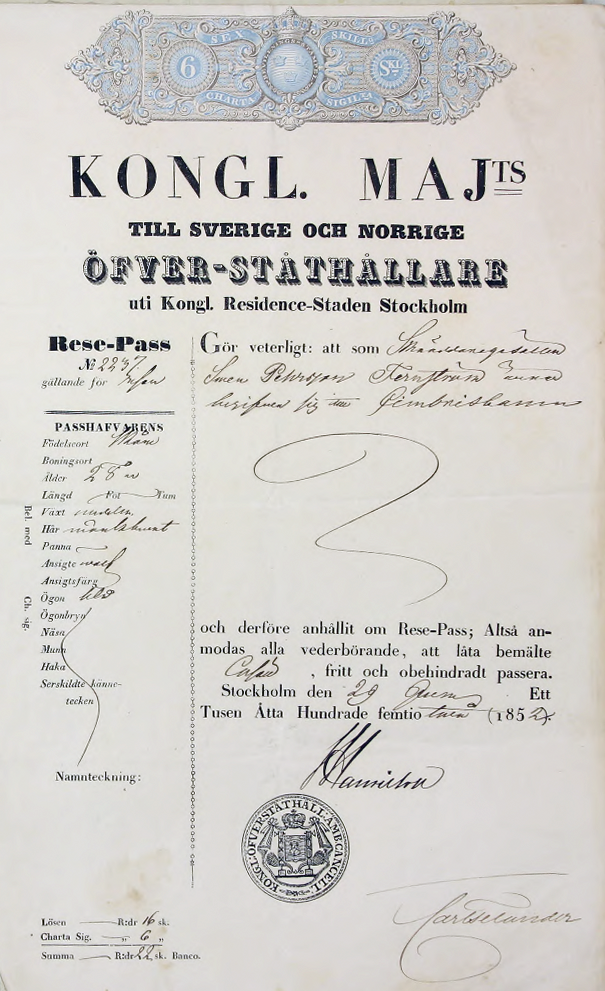 SEX SKILL.
6 SKL
CHARTA SIGILL.
KONGL. MAJTS
TILL SVERIGE OCH NORRIGE
ÖFVER-STÅTHÅLLARE
uti Kongl. Residence-Staden Stockholm
Rese-Pass
№ 2237.
gällande för
Gör veterligt: att som
Sven Pehrsson Fernström
begifva sig till Cimbrishamn
PASSHAFVARENS
Födelseort Skåne
Boningsort
Ålder 28 år
Längd Fot Tum
Växt medelm.
Hår mörkbrunt
Panna
Ansigte ovalt
Ansigtsfärg
Ögon blå
Ögonbryn
Näsa
Mun
Haka
Serskildte känne-
tecken
Bel. med Ch. sig.
och derföre anhållit om Rese-Pass; Altså an-
modas alla vederbörande, att låta bemälte
, fritt och obehindradt passera.
Stockholm den 29 Ett
Tusen Åtta Hundrade femtio två (1852).
Hamilton
Namnteckning:
KONGL: ÖFVERSTÅTHÅLL: ÄMB: CANCELL:
Carl Selander
Lösen R:dr 16 sk.
Charta Sig. „ 6 „
Summa R:dr 22 sk. Banco.